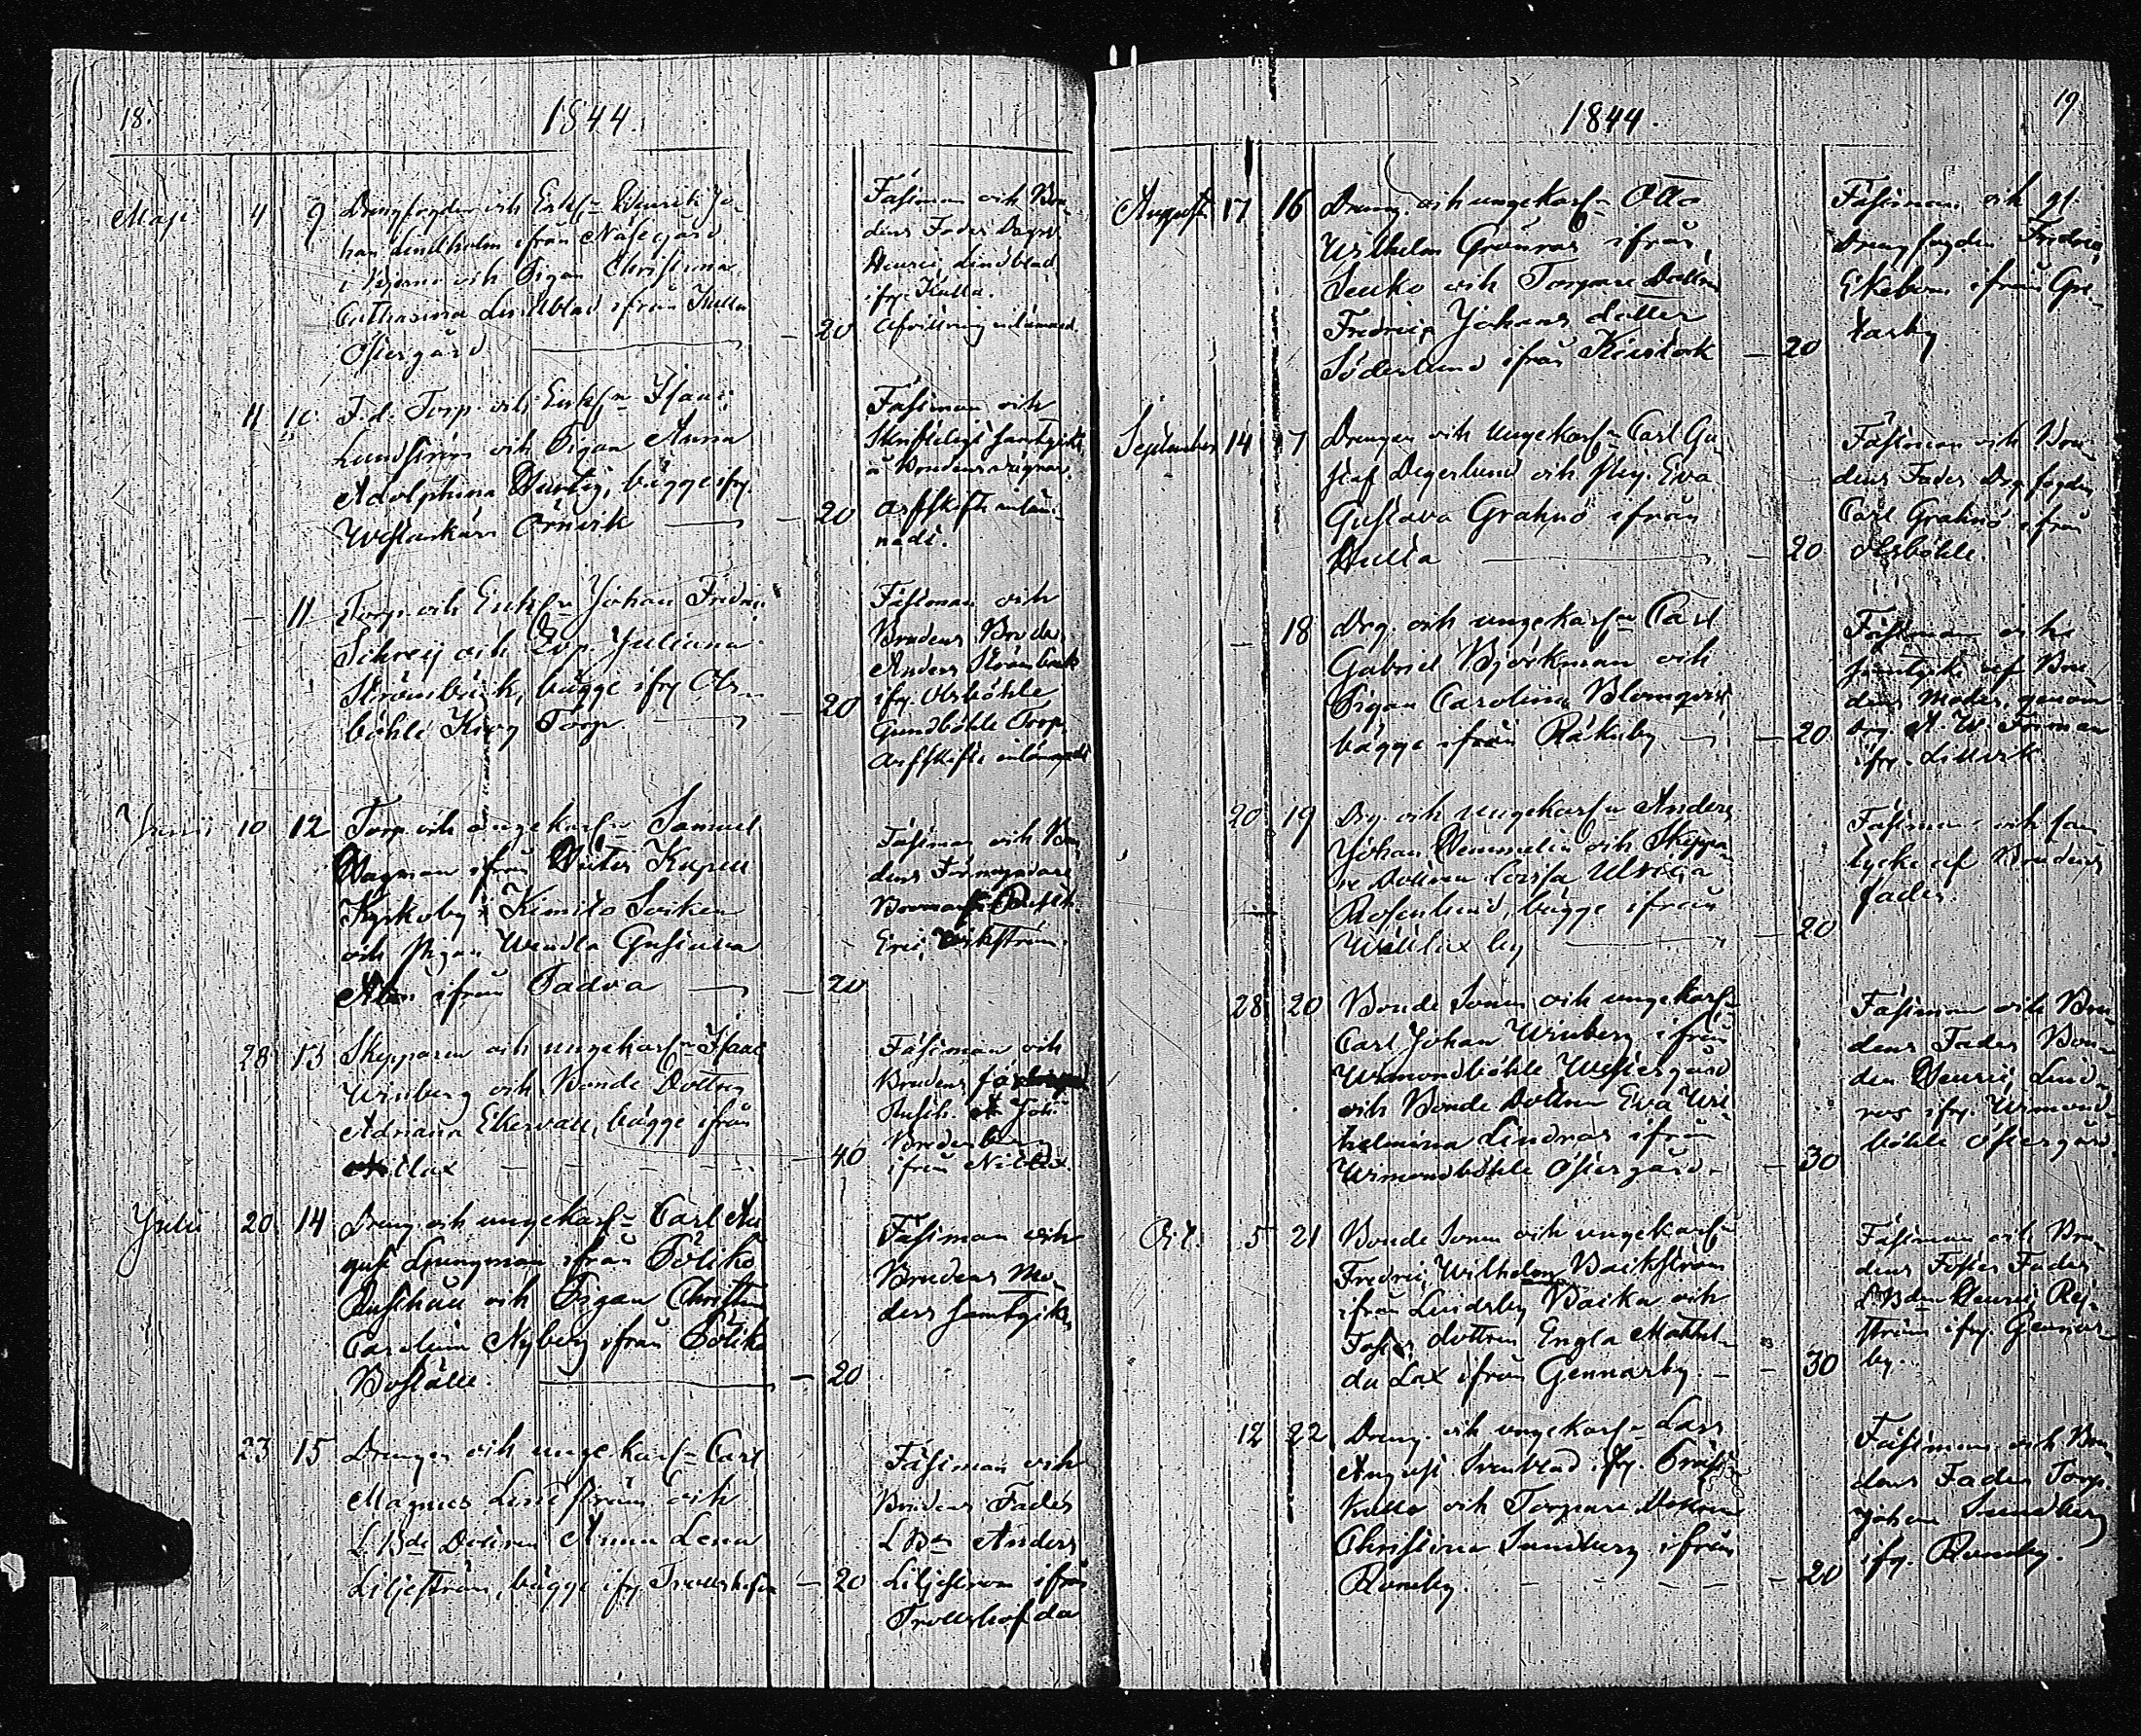 18.
1844.
Maji 4 9 Drengfogden och Enkl:n Henric Jo-
han Lindholm ifrån Näsegård
i Bjerno och Pigan Christina
Catharina Lindblad ifrån Kulla
Östergård — 20
Fästman och Bru-
dens Fader Dagsv.
Henric Lindblad
ifr. Kulla.
Afvittring inlämnad.
11 10. F.d. Torp. och Enkl:n Isaac
Lundström och Pigan Anna
Adolphina Hurtig, bägge ifr.
Westankärr Örnvik — 20
Fästman och
Skrifteligt samtycke
Arfskifte inläm-
nadt.
— 11 Torp. och Enkl:n Johan Fredric
Schrey och Pig. Juliana
Strömbäck, bägge ifr. Ols-
böhle Krog Torp. — 20
Fästman och
Brudens Broder
Anders Strömbäck
ifr. Olsböhle
Gundböhle Torp.
Arfskifte inlämnadt
Junii 10 12 Torp. och ungekarl:n Samuel
Wagman ifrån
Kyrkoby i Kimito Socken
och Pigan Wendla Gustava
ifrån Tadva — 20
Fästman och Bru-
dens Förmyndare
Eric Wikström.
28 13 Skepparen och ungekarl:n Isaac
Winberg och Bonde Dottren
Adriana Ekervall, bägge ifrån
Nillax — 40
Fästman och
Brudens
Rusth. Joh:
ifrån Nillax.
Julii 20 14 Dreng. och ungekarl:n Carl Au-
gust Ljungman ifrån Sölikö
Rusthåll och Pigan Christina
Carolina Nyberg ifrån Sölikö
Boställe. — 20
Fästman och
Brudens Mo-
ders samtycke
23 15 Drengen och ungekarl:n Carl
Magnus Lindström och
L.Bds Dottren Anna Lena
Liljeström, bägge ifr. Trollshofda — 20
Fästman och
Brudens Fader
L.Bn Anders
Liljeström ifrån
Trollshofda
1844.
19
Augusti 17 16 Dreng. och ungekarl:n Otto
Wilhelm Granros ifrån
Senko och Torpare Dottren
Fredrica Johans dotter
Söderlund ifrån — 20
Fästman och gl.
Drengfogden Fredric
Ekebom ifrån Gre-
tarby
September 14 17 Drengen och Ungekarl:n Carl Gu-
staf Degerlund och Pig. Eva
Gustava Grahnö ifrån
Hulta — 20
Fästman och Bru-
dens Fader Drg.fogden
Carl Grahnö ifrån
Olsböhle.
— 18 Drg. och ungekarl:n Carl
Gabriel Björkman och
Pigan Carolina Blomqvist,
bägge ifrån Räkuby — 20
Fästman och
samtycke af Bru-
dens Moder, genom
Drg. A. W. Forman
ifr. Lillvik.
20 19 Drg. och ungekarl:n Anders
Johan Wennelin och Skeppa-
re Dottren Cajsa Ulrica
Rosenlund, bägge ifrån
Wällax by — 20
Fästman och sam-
tycke af Brudens
fader.
28 20 Bonde Sonen och ungekarl:n
Carl Johan Winberg ifrån
Wimondböhle Westergård
och Bonde Dottren Eva Wil-
helmina Lindros ifrån
Wimondböhle Östergård — 30
Fästman och Bru-
dens Fader Bon-
den Henric Lind-
ros ifr. Wimond-
böhle Östergård.
Oct. 5 21 Bonde Sonen och ungekarl:n
Fredric Wilhelm Backström
ifrån Lindsby Backa och
Foster dottren Engla Mathil-
da Lax ifrån Gennarby. — 30
Fästman och Bru-
dens Foster Fader
L.Bden Henric Rej-
ström ifr. Gennar-
by.
12 22 Dreng. och ungekarl:n Lars
August Svenblad ifr. Prest-
kulla och Torpare Dottren
Christina Sundberg ifrån
Romby. — 20
Fästman och Bru-
dens Fader Torp.
Johan Sundberg
ifr. Romby.